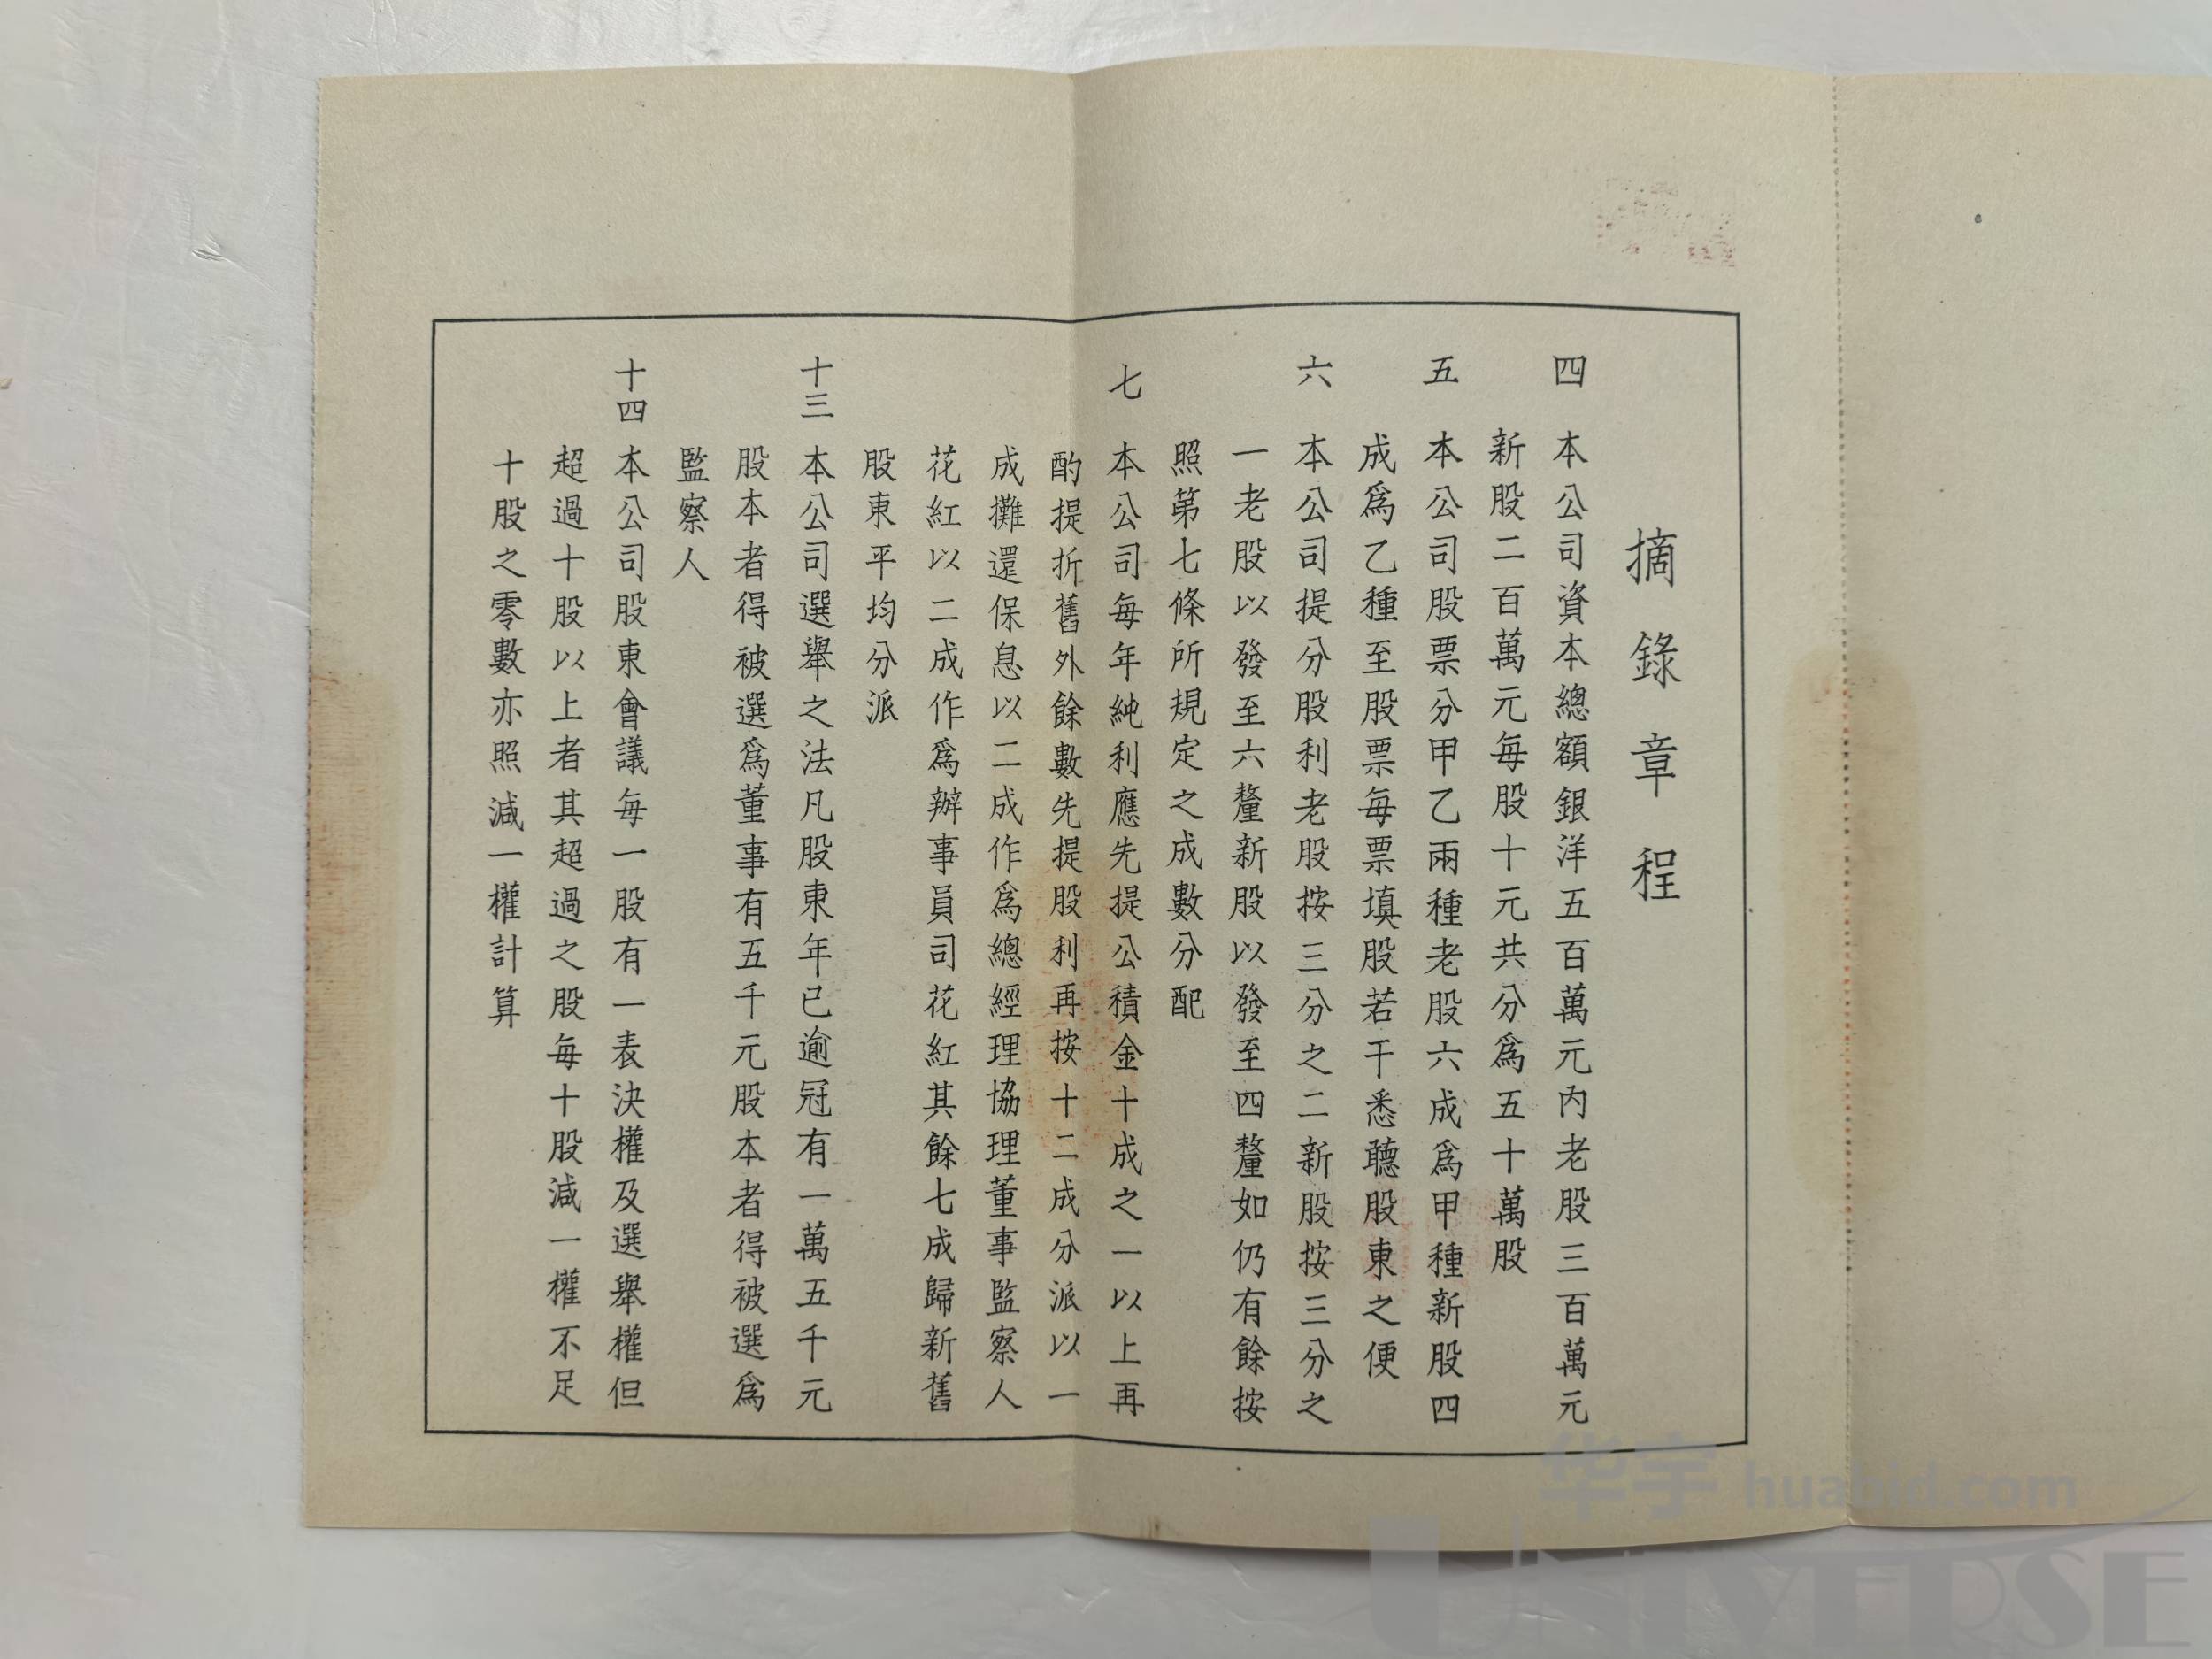 摘錄章程
四 本公司資本總額銀洋五百萬元內老股三百萬元
新股二百萬元每股十元共分爲五十萬股
五 本公司股票分甲乙兩種老股六成爲甲種新股四
成爲乙種至股票每票填股若干悉聽股東之便
六 本公司提分股利老股按三分之二新股按三分之
一老股以發至六釐新股以發至四釐如仍有餘按
照第七條所規定之成數分配
七 本公司每年純利應先提公積金十成之一以上再
酌提折舊外餘數先提股利再按十二成分派以一
成攤還保息以二成作爲總經理協理董事監察人
花紅以二成作爲辦事員司花紅其餘七成歸新舊
股東平均分派
十三 本公司選舉之法凡股東年已逾冠有一萬五千元
股本者得被選爲董事有五千元股本者得被選爲
監察人
十四 本公司股東會議每一股有一表決權及選舉權但
超過十股以上者其超過之股每十股減一權不足
十股之零數亦照減一權計算
华宇 huabid.com
UNIVERSE